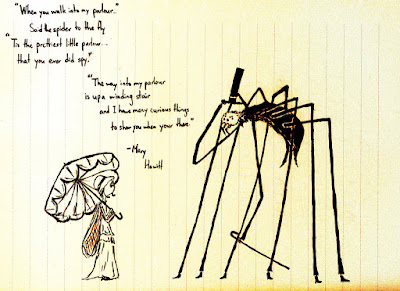 "When you walk into my parlour.."
Said the spider to the fly
"'Tis the prettiest little parlour..
that you ever did spy."
"The way into my parlour
is up a winding stair
and I have many curious things
to show you when your there."
-Mary
Howitt